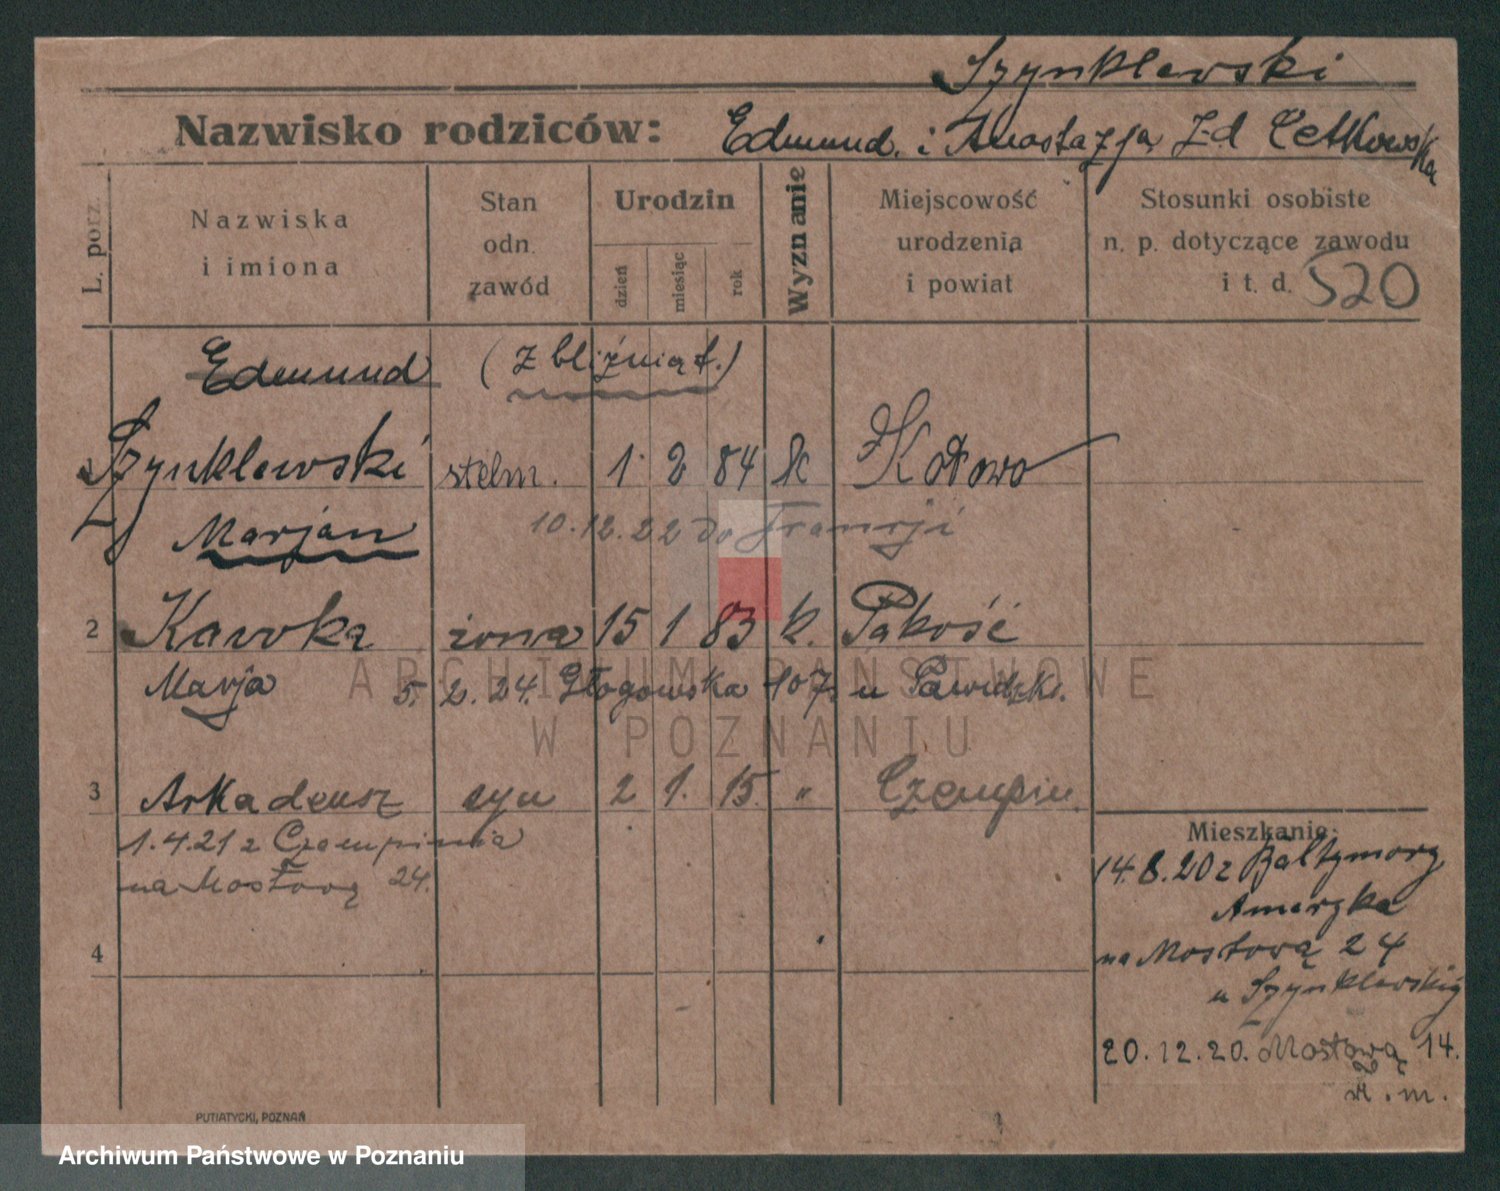 Szynklewski
Nazwisko rodziców: Edmund. i Anastazja z-d Cetkowska
L. porz.
Nazwiska i imiona
Stan odn. zawód
Urodzin
dzień
miesiąc
rok
Wyznanie
Miejscowość urodzenia i powiat
Stosunki osobiste n. p. dotyczące zawodu i t. d. S20
Edmund (z bliźniąt.)
Szynklewski stelm. 1 2 84 k Kotowo
Marjan 10.12.22 do Francji
2 Kawoka żona 15 1 83 k. Pakość
Marja 5. 2. 24. Głogowska 107. u
3 Arkadeusz syn 2 1. 15. " Czempiń.
1.4.21 z Czempinia
na Mostową 24.
4
Mieszkanie:
14.8.20 z Baltymory
Ameryka
na Mostową 24
u Szynklewskiej
20.12.20. Mostową 14.
z. m.
PUTIATYCKI, POZNAŃ
ARCHIWUM PAŃSTWOWE
W POZNANIU
Archiwum Państwowe w Poznaniu